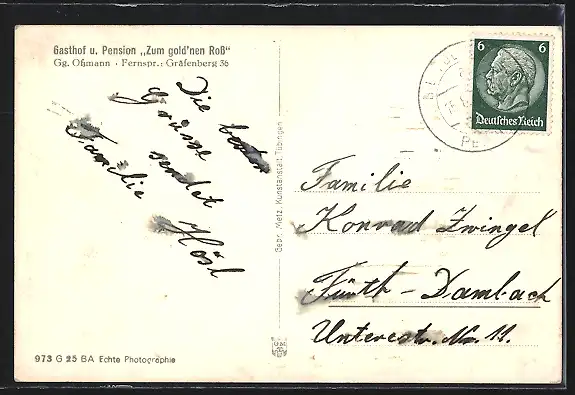 Gasthof u. Pension „Zum gold'nen Roß“
Gg. Oßmann · Fernspr.: Gräfenberg 36
Die besten
Grüsse
sendet
Familie Hösl
Gebr. Metz, Kunstanstalt, Tübingen
6 6
Deutsches Reich
Familie
Konrad Zwingel
Fürth - Dambach
Unterestr. Nr. 11.
973 G 25 BA Echte Photographie